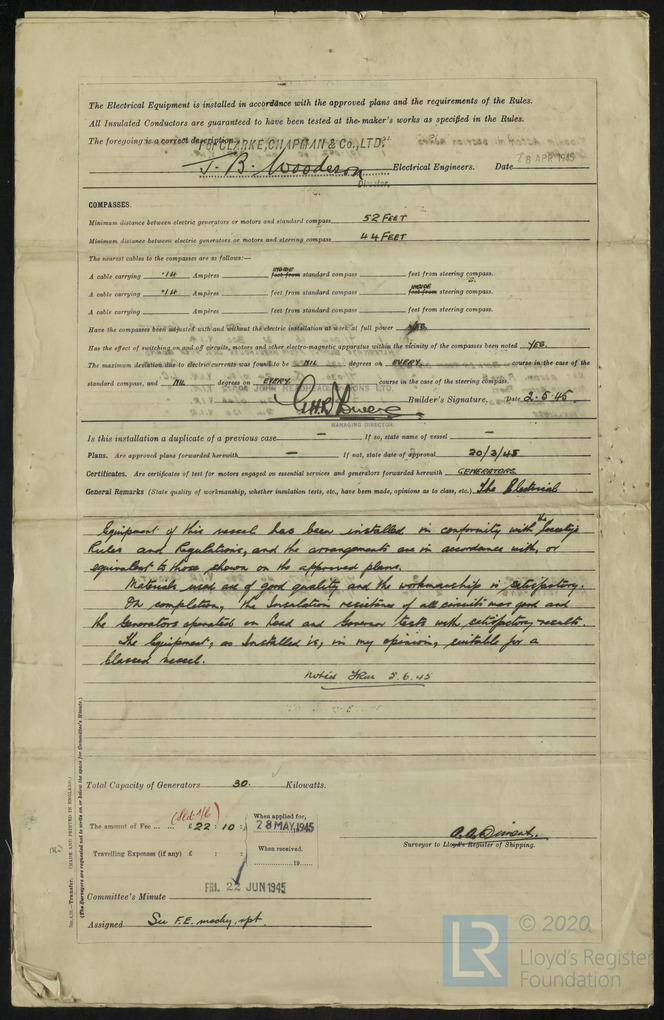 The Electrical Equipment is installed in accordance with the approved plans and the requirements of the Rules.
All Insulated Conductors are guaranteed to have been tested at the maker's works as specified in the Rules.
The foregoing is a correct description.
For CLARKE, CHAPMAN & Co., LTD.
J. B. Wooderson Electrical Engineers. Date 28 APR 1945
Director.
COMPASSES.
Minimum distance between electric generators or motors and standard compass 52 FEET
Minimum distance between electric generators or motors and steering compass 44 FEET
The nearest cables to the compasses are as follows:—
A cable carrying .14 Ampères INSIDE feet from standard compass feet from steering compass.
A cable carrying .14 Ampères feet from standard compass INSIDE feet from steering compass.
A cable carrying Ampères feet from standard compass feet from steering compass.
Have the compasses been adjusted with and without the electric installation at work at full power YES.
Has the effect of switching on and off circuits, motors and other electro-magnetic apparatus within the vicinity of the compasses been noted YES.
The maximum deviation due to electric currents was found to be NIL degrees on EVERY course in the case of the
standard compass, and NIL degrees on EVERY course in the case of the steering compass.
JOHN READHEAD & SONS LTD.
Builder's Signature. Date 2.5.45.
MANAGING DIRECTOR.
Is this installation a duplicate of a previous case — If so, state name of vessel —
Plans. Are approved plans forwarded herewith — If not, state date of approval 20/3/45
Certificates. Are certificates of test for motors engaged on essential services and generators forwarded herewith GENERATORS
General Remarks (State quality of workmanship, whether insulation tests, etc., have been made, opinions as to class, etc.) The Electrical
Equipment of this vessel has been installed in conformity with the Society's
Rules and Regulations, and the arrangements are in accordance with, or
equivalent to those shown on the approved plans.
Materials used are of good quality and the workmanship is satisfactory.
On completion, the Insulation resistance of all circuits was good and
the Generators operated on Load and Governor tests with satisfactory results.
The Equipment, as Installed is, in my opinion, suitable for a
Classed vessel.
Noted 6.45
Total Capacity of Generators 30. Kilowatts.
The amount of Fee ... ... £ 22 : 10 :
When applied for, 28 MAY 1945
Travelling Expenses (if any) £ : :
When received. 19
Surveyor to Lloyd's Register of Shipping.
Committee's Minute FRI. 22 JUN 1945
Assigned See F.E. machy. rpt.
Transfer. (MADE AND PRINTED IN ENGLAND.)
(The Surveyors are requested not to write on or below the space for Committee's Minute.)
LR © 2020
Lloyd's Register
Foundation